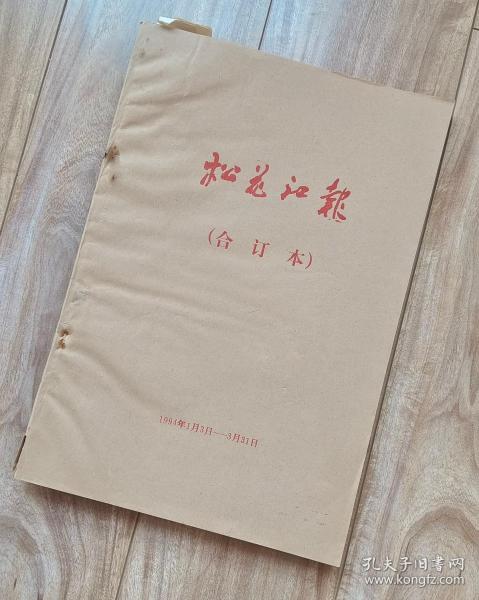 松花江報
（合订本）
1984年1月3日——3月31日
孔夫子旧书网
www.kongfz.com